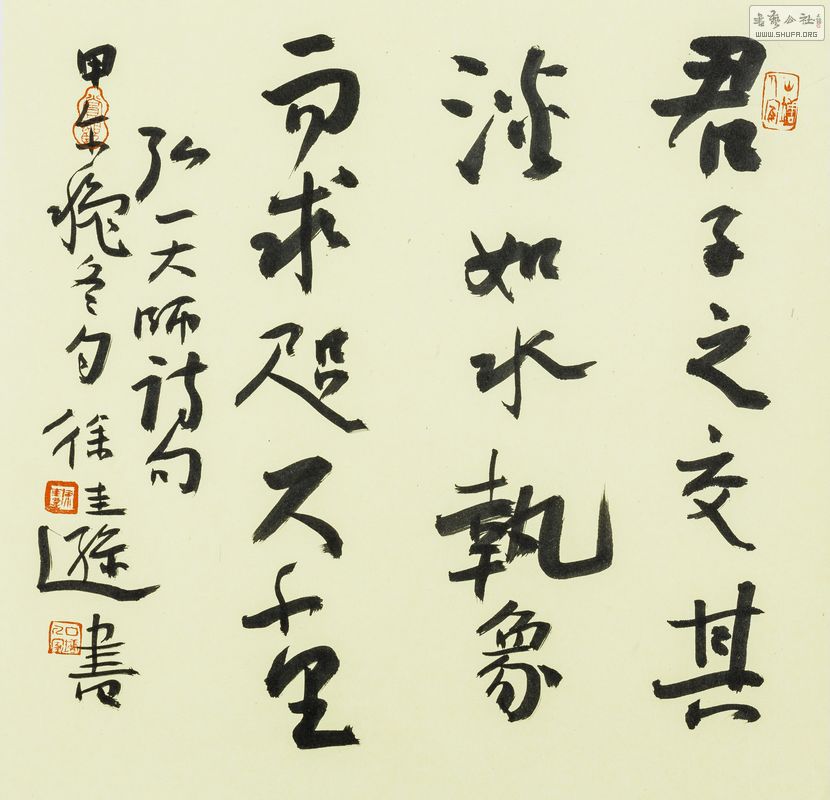 君子之交其
淡如水執象
而求咫尺千里
弘一大師詩句
甲午冬徐圭遜書
書藝公社
WWW.SHUFA.ORG